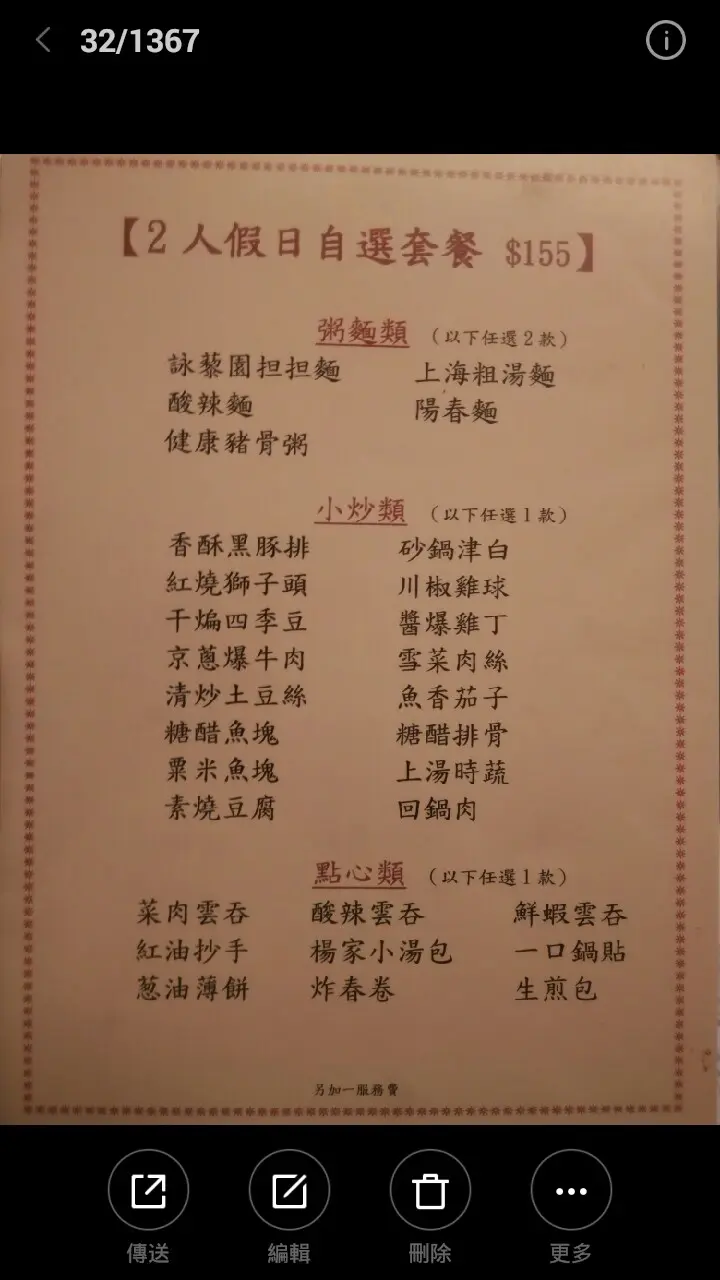 32/1367
【2人假日自選套餐 $155】
粥麵類 (以下任選2款)
詠藜園担担麵 上海粗湯麵
酸辣麵 陽春麵
健康豬骨粥
小炒類 (以下任選1款)
香酥黑豚排 砂鍋津白
紅燒獅子頭 川椒雞球
干煸四季豆 醬爆雞丁
京蔥爆牛肉 雪菜肉絲
清炒土豆絲 魚香茄子
糖醋魚塊 糖醋排骨
粟米魚塊 上湯時蔬
素燒豆腐 回鍋肉
點心類 (以下任選1款)
菜肉雲吞 酸辣雲吞 鮮蝦雲吞
紅油抄手 楊家小湯包 一口鍋貼
蔥油薄餅 炸春卷 生煎包
另加一服務費
傳送 編輯 刪除 更多